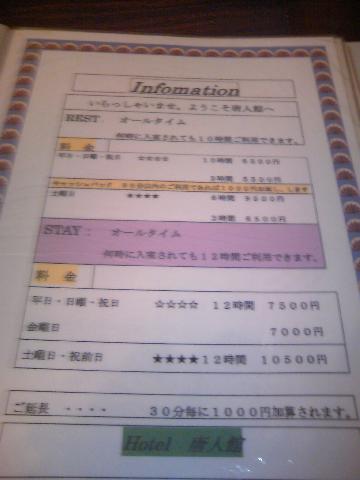 Infomation
いらっしゃいませ。ようこそ唐人館へ
REST. オールタイム
何時に入室されても10時間ご利用できます。
料 金
平日・日曜・祝日 ☆☆☆☆ 10時間
キャッシュバック 90分以内のご利用であれば1000円 します
土曜日 ★★★★
3時間 6500円
STAY: オールタイム
何時に入室されても12時間ご利用できます。
料 金
平日・日曜・祝日 ☆☆☆☆ 12時間 7500円
金曜日 7000円
土曜日・祝前日 ★★★★12時間 10500円
ご延長 ・・・・ 30分毎に1000円加算されます。
Hotel 唐人館